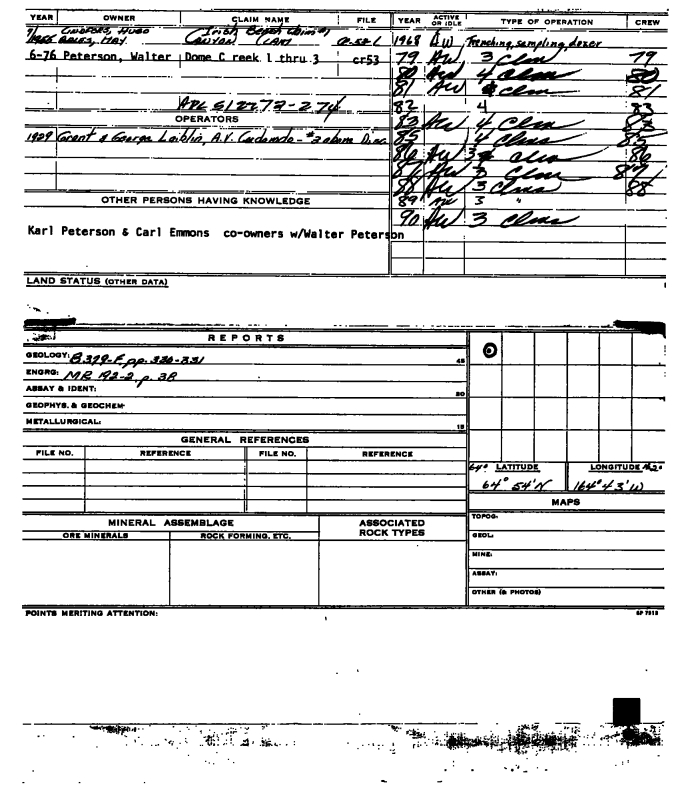 YEAR OWNER CLAIM NAME FILE YEAR ACTIVE OR IDLE TYPE OF OPERATION CREW
LINDFORS, HUGO Irish Bench Claim #1
MAY CANYON 1968 AW Trenching, sampling, dozer
6-76 Peterson, Walter Dome C reek 1 thru 3 cr53 79 AW 3 Clms 79
80 AW 4 Clms 80
81 AW Clms 81
APL 82 4 83
OPERATORS 83 AW 4 Clms
1929 Grant & George Laiblin, A.V. - #2 above Disc. 85 4 Clms 85
86 AW Clms 86
AW Clms 87
88 AW 3 Clms 88
OTHER PERSONS HAVING KNOWLEDGE 89 3 "
90 AW 3 Clms
Karl Peterson & Carl Emmons co-owners w/Walter Peterson
LAND STATUS (OTHER DATA)
REPORTS
GEOLOGY: B 379-F, pp. 330-331 45
ENGRG: MR 192-2, p. 38
ASSAY & IDENT: 20
GEOPHYS. & GEOCHEM:
METALLURGICAL: 15
GENERAL REFERENCES
FILE NO. REFERENCE FILE NO. REFERENCE
64° LATITUDE LONGITUDE
64° 54'N 164° 43'W
MAPS
MINERAL ASSEMBLAGE ASSOCIATED ROCK TYPES TOPOG:
ORE MINERALS ROCK FORMING, ETC. GEOL:
MINE:
ASSAY:
OTHER (& PHOTOS)
POINTS MERITING ATTENTION: